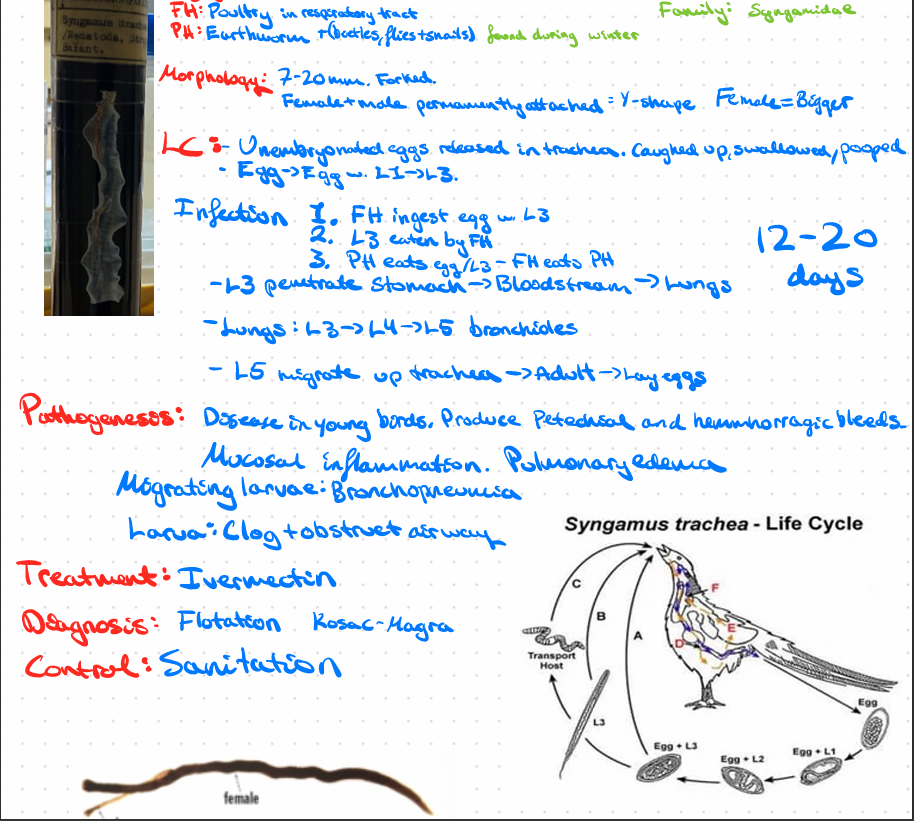 FH: Poultry in respiratory tract
Family: Syngamidae
PH: Earthworm +(beetles, flies+snails) found during winter
Syngamus trache
/Nematoda, Stro
Morphology: 7-20mm. Forked.
Female+male permamently attached = Y-shape Female=Bigger
LC:- Unembryonated eggs released in trachea. Caughed up, swallowed, pooped
- Egg->Egg w. L1->L3.
Infection 1. FH ingest egg w L3
2. L3 eaten by FH
3. PH eats egg/L3 - FH eats PH
12-20
days
-L3 penetrate stomach->Bloodstream->Lungs
-Lungs: L3->L4->L5 bronchioles
- L5 migrate up trachea->Adult->Lay eggs
Pathogenesis: Disease in young birds. Produce Petechial and hemmhorragic bleeds.
Mucosal inflammation. Pulmonary edema
Migrating larvae: Bronchopneumcia
Larva: Clog + obstruct airway
Treatment: Ivermectin
Diagnosis: Flotation Kosac-Magra
Control: Sanitation
Syngamus trachea - Life Cycle
C
B
A
F
E
D
Transport
Host
L3
Egg
Egg + L3
Egg + L2
Egg + L1
female